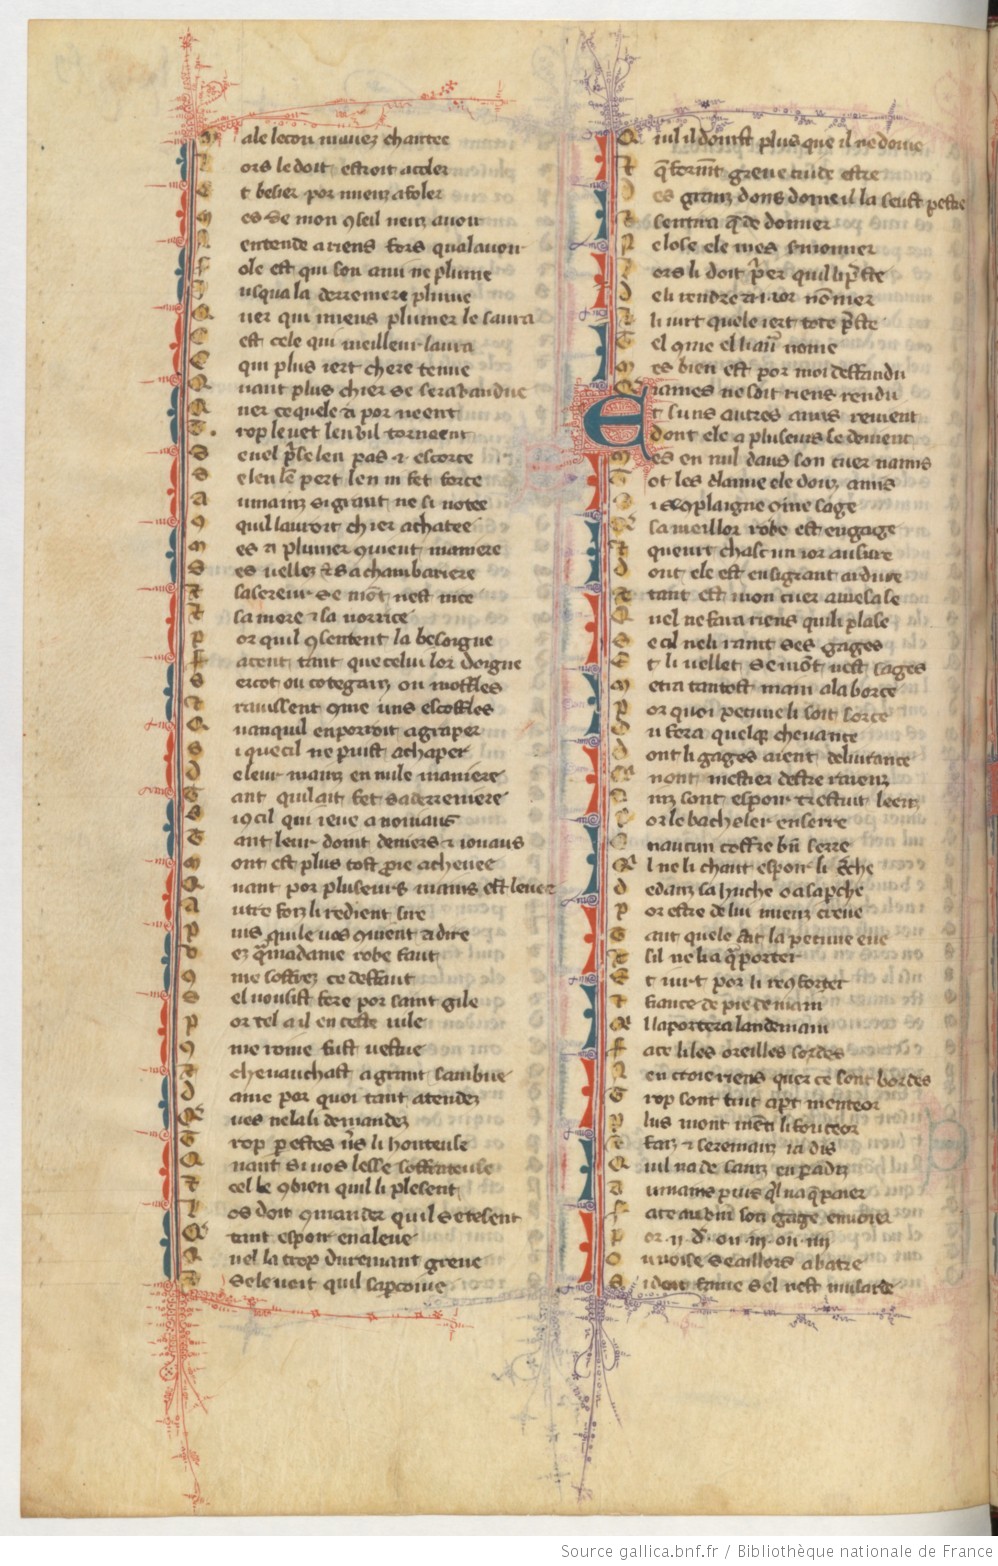 M ale lecon mavez chantee
L ors le doit estroit acoler
E t besier por mieuz afoler
M es se mon 9seil neuz avoir
N entende a riens fors qua lavoir
F ole est qui son ami ne plume
J usqua la derreniere plume
Q uer qui mieus plumer le saura
C est cele qui meilleur laura
E t qui plus iert chere tenue
Q uant plus chier se sera vandue
Q uer ce quele a por neent
T rop le vet len vil tornaent
S e uel
S e len le pert len ni fet force
A umainz si grant ne si notee
9 quil lauroit chier achatee
M es a plumer 9vient maniere
S es vallez & sa chambariere
E t sa sereur se mot nest nice
E t sa mere & la norrice
P or quil 9sentent la besoigne
F acent tant que celui lor doigne
S ercot ou cote ganz ou moffles
E t ravissent 9me uns escoffles
Q uanquil en porroit agraper
S i que cil ne puist achaper
D e leur mainz en nule maniere
T ant quil ait fet sa derreniere
S i 9 cil qui ieue a noiiaus
T ant leur doint deniers & ioiiaus
M ont est plus tost proie achevee
Q uant por pluseurs mains est levee
A utre foiz li redient sire
P uis quil le vos 9vient a dire
V ez qua madame robe faut
9 me soffrez ce deffaut
S el vousist fere por saint gile
P or tel a il en ceste vile
9 me roine fust vestue
E t chevauchast a grant sambue
D ame por quoi tant atendez
Q ue vos ne la li demandez
T rop p estes vers li honteuse
Q uant si vos lesse soffraiteuse
E t cel le 9bien quil li plesent
L os doit 9mander quil se tesent
Q ui tant espoir en a leve
Q uel la trop durement greve
E t se le voit quil saparcoive
Q uil il doinst plus que il ne doive
E t que forment greve cuide estre
D es granz dons dont il la seust pestre
E t sentira que de donner
N e lose ele mes sermonner
L ors li doit prier quil li preste
D el rendre a ior nommer
E t li iurt quele iert tote preste
T el 9me el li aura nome
M es bien est por moi deffandu
Q ue iames ne soit riens rendu
E t suns autres amis revient
dont ele a pluseurs se devient
M es en nul daus son cuer na mis
T ot les clame ele douz amis
S i se 9plaigne 9me sage
Q ue sa meillor robe est en gage
E t queurt chascun ior a usure
D ont ele est en si grant ardure
E t tant est mon cuer a mesese
Q uel ne fera riens qui li plese
S e cil ne li raint ses gages
E t li vellet se mot nest sages
M etra tantost main a la borce
P or quoi pecune li soit sorce
O u fera quelque chevance
D ont li gages aient delivrance
Q ui nont mestier destre raienz
A inz sont espoir trestuit leenz
P or le bacheler enserre
E n aucun coffre bien serre
Q uil ne li chaut espoir sil cerche
D edanz sa huche ou a sa perche
P or estre de lui mieuz creue
T ant quele ait la pecune eue
E t sil ne li a que porter
E t iurt por li reconforter
E t fiance de pie de main
Q uil laportera landemain
F ace li les oreilles sordes
N en croie riens quer ce sont bordes
T rop sont tuit apert menteor
P lus mont menti li fouteor
E t faiz & seremanz iadis
Q uil na de sainz en paradiz
A umains puis quil na que paier
F ace au vin son gage envoier
P or .ii. d. ou .iii. ou .iiii.
O u voise seaillors abatre
S i doit fame sel nest musarde